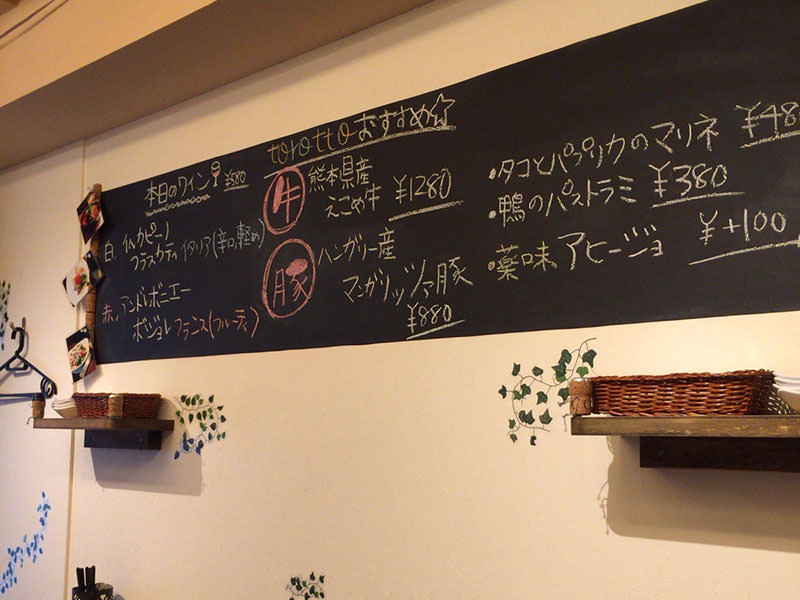 本日のワイン ¥580
白 イル カピーノ
フラスカティ イタリア(辛口,軽め)
赤 アンドレ ボニエー
ボジョレ フランス(フルーティ)
torotto おすすめ☆
牛 熊本県産
えこめ牛 ¥1280
豚 ハンガリー産
マンガリッツァ豚
¥880
・タコとパプリカのマリネ ¥48
・鴨のパストラミ ¥380
・薬味 アヒージョ ¥+100